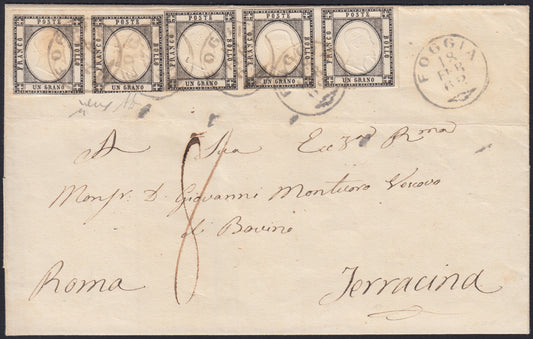 POSTE POSTE POSTE POSTE POSTE
FRANCO BOLLO FRANCO BOLLO FRANCO BOLLO FRANCO BOLLO FRANCO BOLLO
UN GRANO UN GRANO UN GRANO UN GRANO UN GRANO
FOGGIA
FEB
A Sua Ecc.za Rma
8
Monsr. D. Giovanni Montuoro Vescovo
di Bovino
Roma Terracina